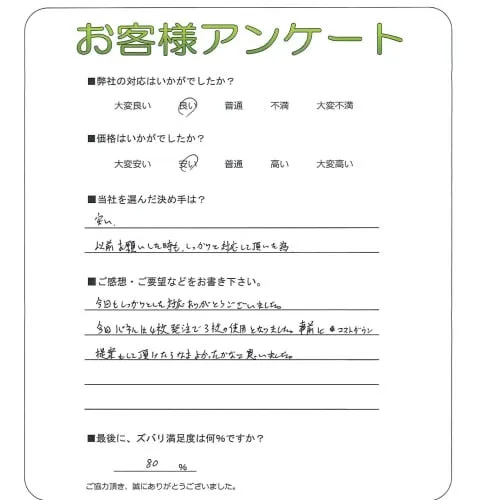 お客様アンケート
■弊社の対応はいかがでしたか？
大変良い 良い 普通 不満 大変不満
■価格はいかがでしたか？
大変安い 安い 普通 高い 大変高い
■当社を選んだ決め手は？
安い、
以前お願いした時も、しっかりと対応して頂いた為
■ご感想・ご要望などをお書き下さい。
今回もしっかりとした対応ありがとうございました。
今回パネルは4枚発注で3枚の使用となりました。事前にコストダウン
提案もして頂けたらなおよかったかなと思いました。
■最後に、ズバリ満足度は何％ですか？
80 %
ご協力頂き、誠にありがとうございました。